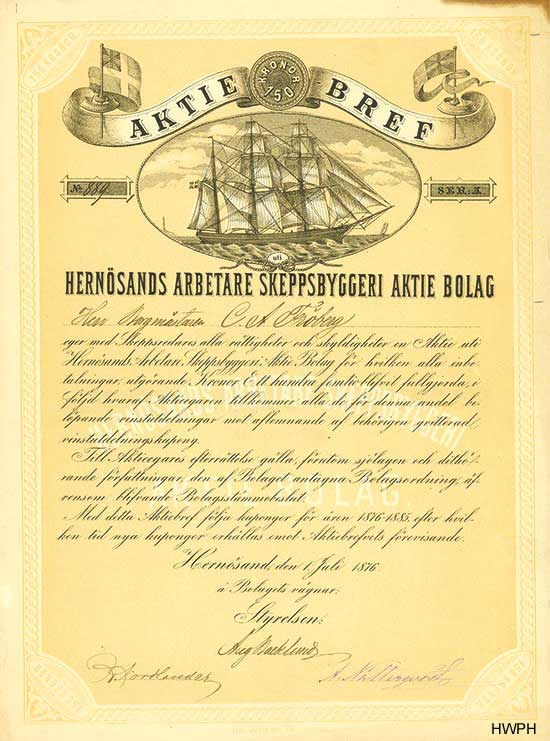 AKTIE-BREF
KRONOR
150
№ 889
SER: A.
uti
HERNÖSANDS ARBETARE SKEPPSBYGGERI AKTIE BOLAG
Herr C. A. Fröberg
eger med Skeppsredares alla rättigheter och skyldigheter en Aktie uti
Hernösands Arbetare Skeppsbyggeri Aktie Bolag för hvilken alla inbe-
talningar, utgörande Kronor Ett hundra femtio blifvit fullgjorda, i
följd hvaraf Aktieegaren tillkommer alla de för denna andel be-
löpande vinstutdelningar mot aflemnande af behörigen qvitterad
vinstutdelningskupong.
Till Aktieegares efterrättelse gälla, förutom sjölagen och dithö-
rande författningar, den af Bolaget antagna Bolagsordning, äf-
vensom blifvande Bolagsstämmobeslut.
Med detta Aktiebref följa kuponger för åren 1876-1885, efter hvil-
ken tid nya kuponger erhållas emot Aktiebrefvets förevisande.
Hernösand, den 1 Juli 1876
å Bolagets vägnar:
Styrelsen:
Aug Backlund
Nordlander
HWPH